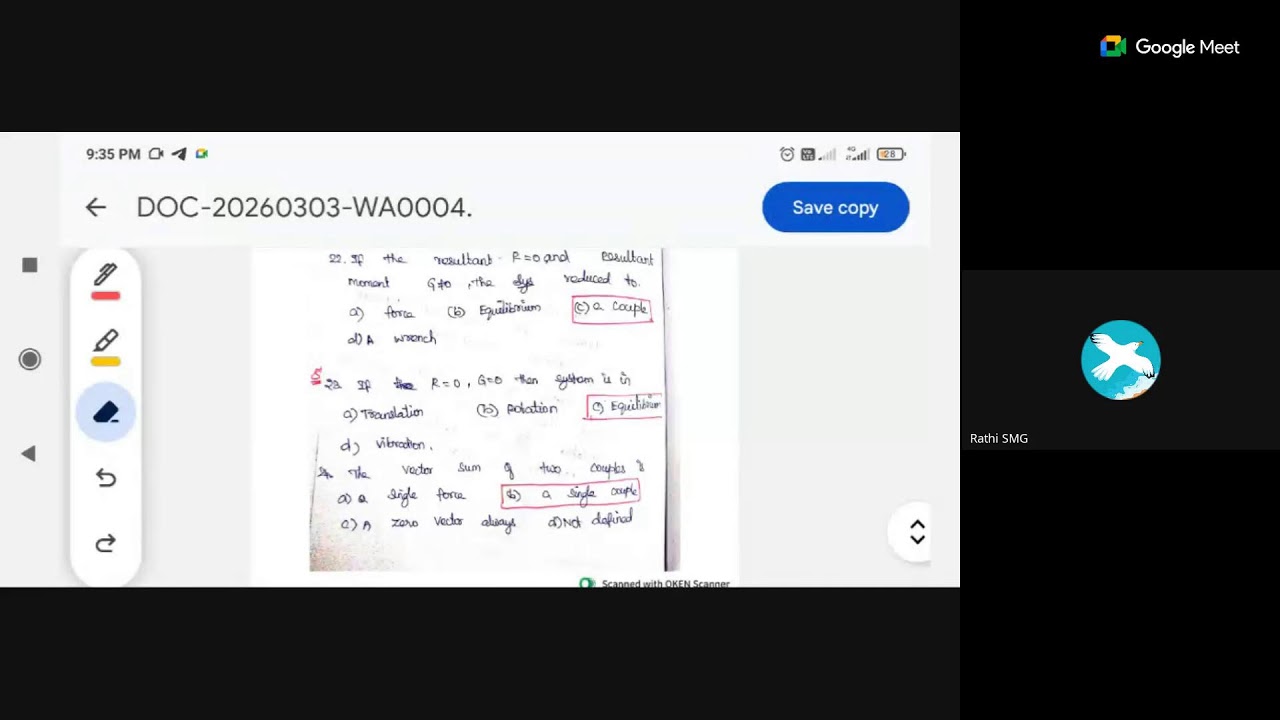 Google Meet
9:35 PM
4G
28
DOC-20260303-WA0004.
Save copy
22. If the resultant R=0 and resultant
moment G≠0, the sys reduced to.
a) force (b) Equilibrium (c) a couple
d) A wrench
23 If the R=0, G=0 then system is in
a) Translation (b) Rotation (c) Equilibrium
d) vibration.
24. The vector sum of two couples is
a) a single force (b) a single couple
c) A zero vector always d) Not defined
Scanned with OKEN Scanner
Rathi SMG